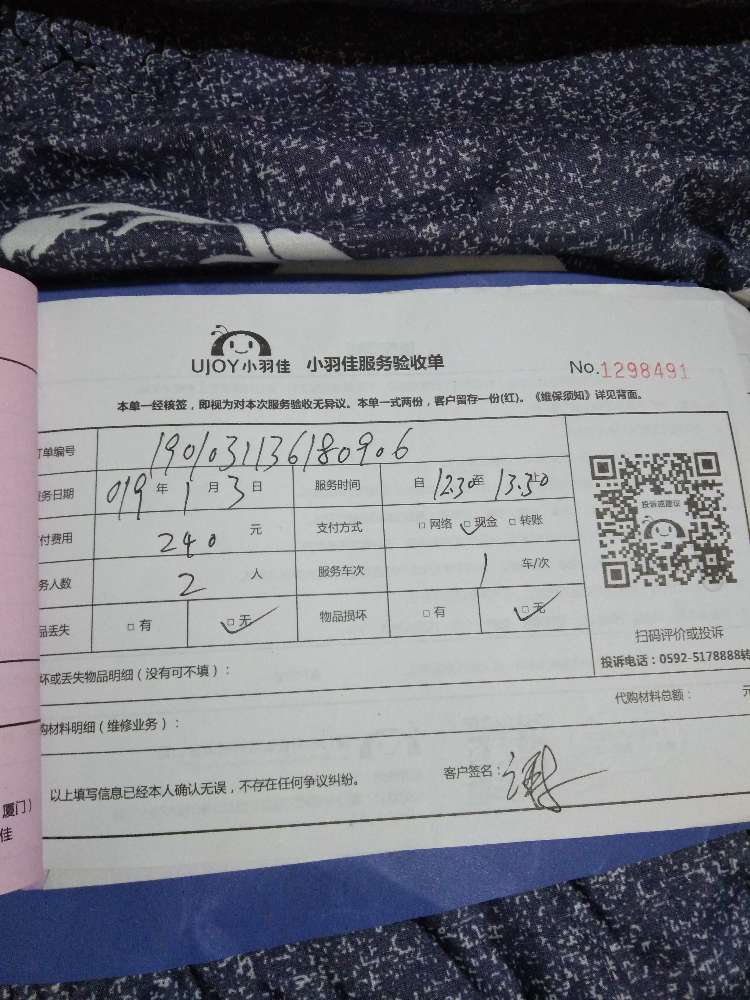 UJOY小羽佳 小羽佳服务验收单 No.1298491
本单一经核签，即视为对本次服务验收无异议。本单一式两份，客户留存一份(红)。《维保须知》详见背面。
订单编号 1901031136180906
务日期 019年1月3日 服务时间 自12.30至13.30止
付费用 240元 支付方式 □网络 ☑现金 □转账
务人数 2人 服务车次 1车/次
品丢失 □有 ☑无 物品损坏 □有 ☑无
投诉或建议
扫码评价或投诉
投诉电话：0592-5178888转
坏或丢失物品明细（没有可不填）：
购材料明细（维修业务）： 代购材料总额： 元
以上填写信息已经本人确认无误，不存在任何争议纠纷。 客户签名：
厦门）
佳